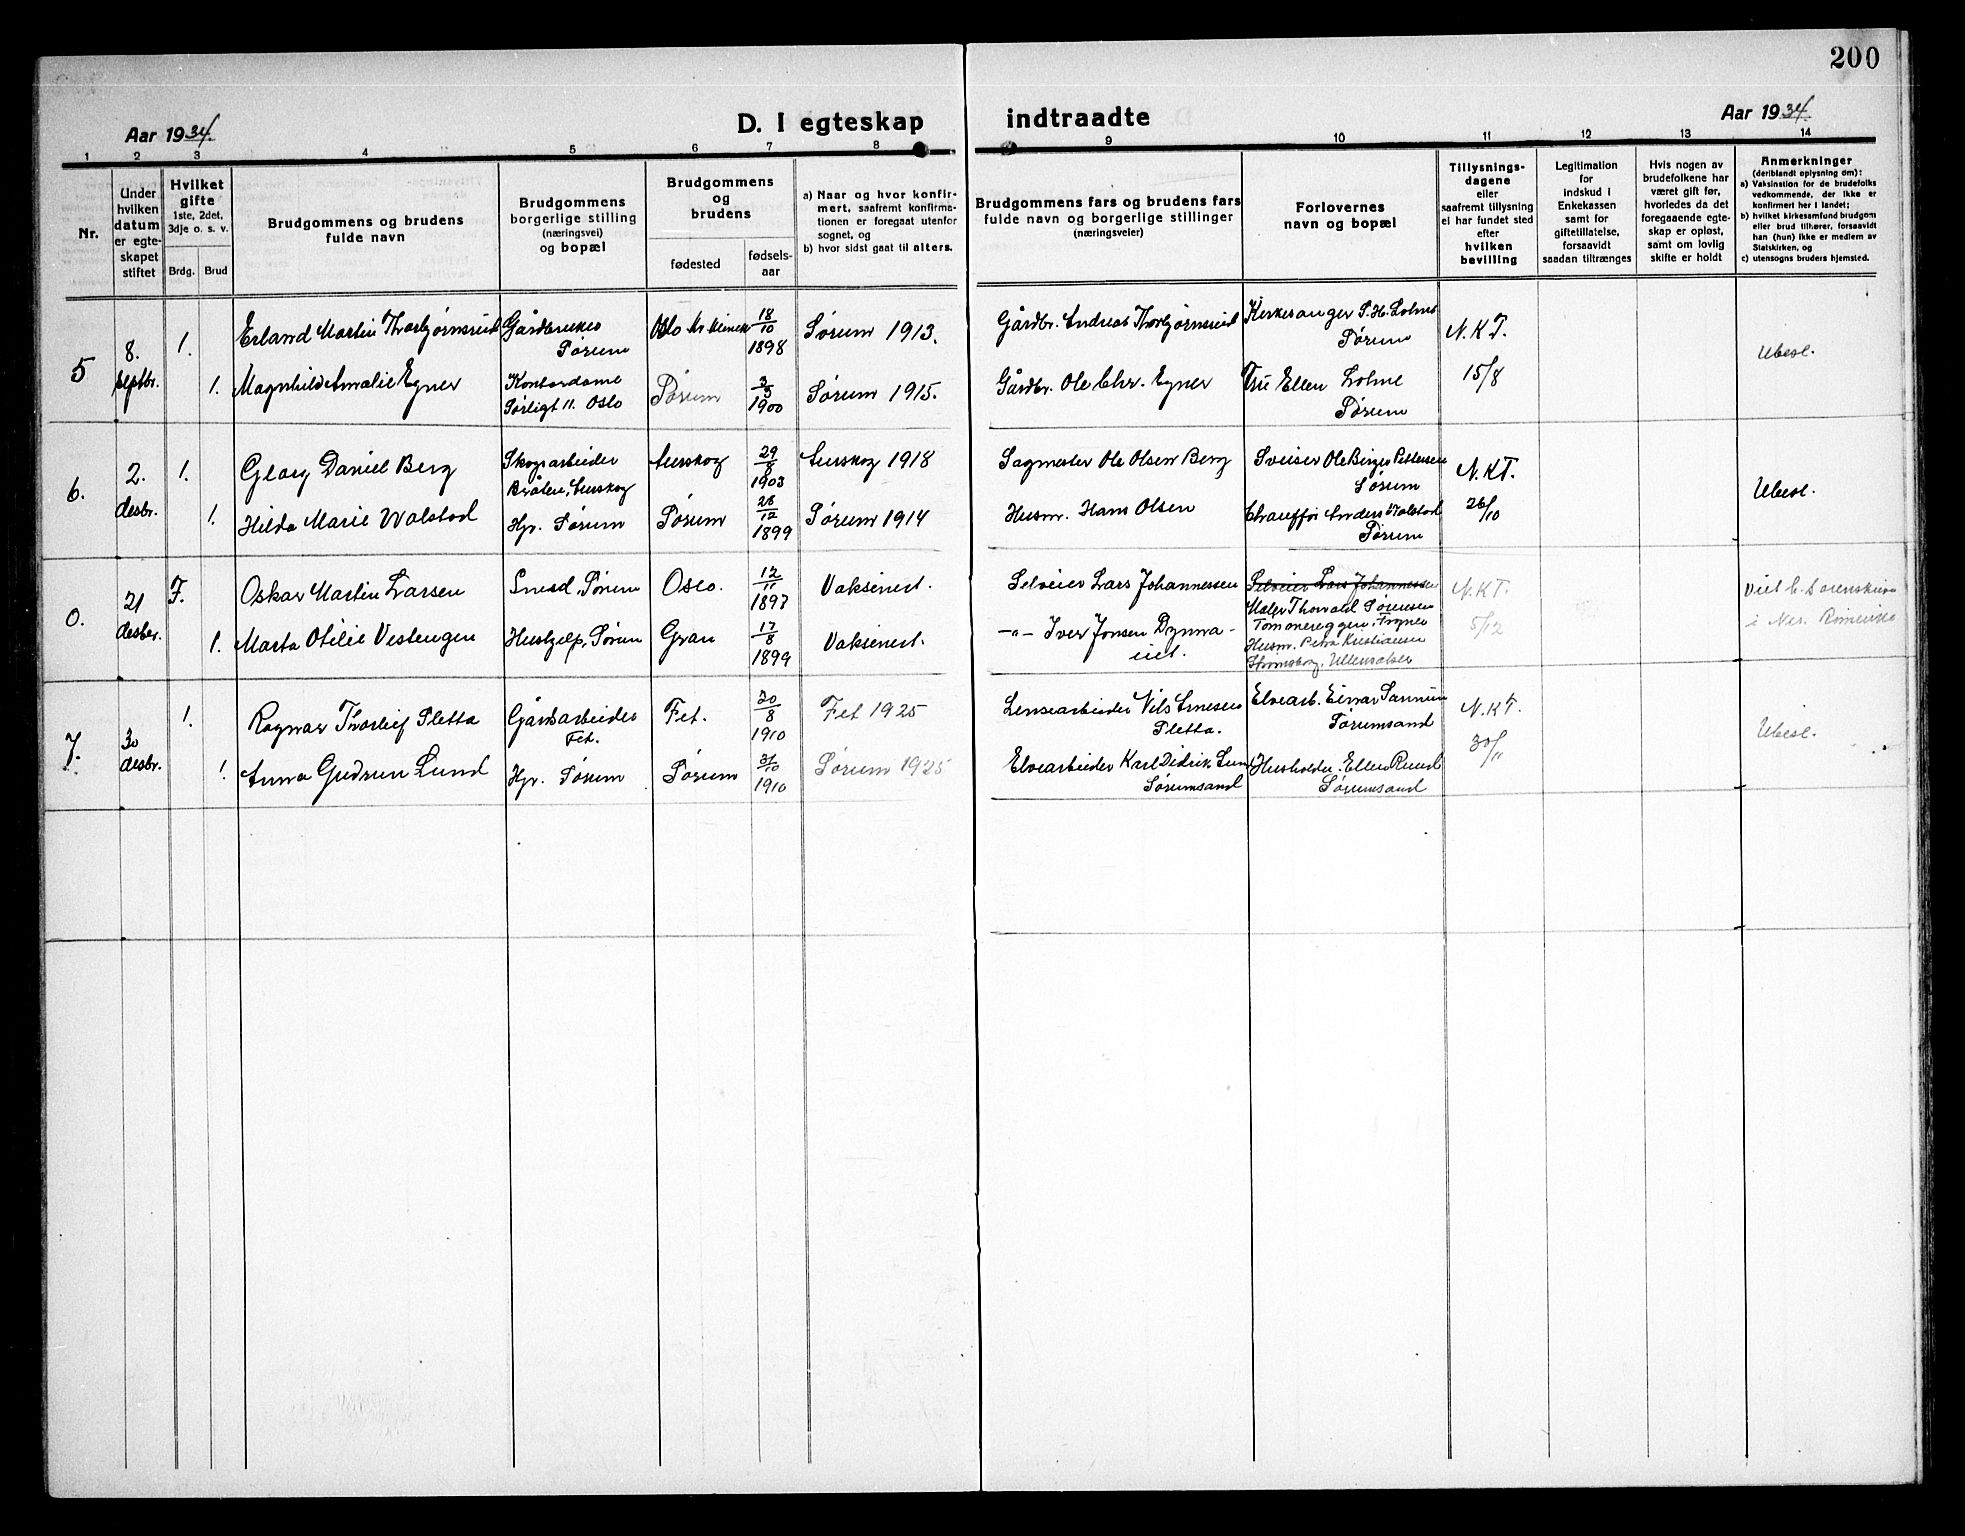 200
Aar 1934.
D. I egteskap indtraadte
Aar 1934.
1 2 3 4 5 6 7 8 9 10 11 12 13 14
Nr.
Under
hvilken
datum
er egte-
skapet
stiftet
Hvilket
gifte
1ste, 2det,
3dje o. s. v.
Brdg. Brud
Brudgommens og brudens
fulde navn
Brudgommens
borgerlige stilling
(næringsvei)
og bopæl
Brudgommens
og
brudens
fødested
fødsels-
aar
a) Naar og hvor konfir-
mert, saafremt konfirma-
tionen er foregaat utenfor
sognet, og
b) hvor sidst gaat til alters.
Brudgommens fars og brudens fars
fulde navn og borgerlige stillinger
(næringsveier)
Forlovernes
navn og bopæl
Tillysnings-
dagene
eller
saafremt tillysning
ei har fundet sted
efter
hvilken
bevilling
Legitimation
for
indskud i
Enkekassen
samt for
giftetillatelse,
forsaavidt
saadan tiltrænges
Hvis nogen av
brudefolkene har
været gift før,
hvorledes da det
foregaaende egte-
skap er opløst,
samt om lovlig
skifte er holdt
Anmerkninger
(deriblandt oplysning om):
a) Vaksination for de brudefolks
vedkommende, der ikke er
konfirmert her i landet;
b) hvilket kirkesamfund brudgom
eller brud tilhører, forsaavidt
han (hun) ikke er medlem av
Statskirken, og
c) utensogns bruders hjemsted.
5
8.
septbr.
1.
Erland Martin Thorbjørnsrud
Gårdbruker
Sørum
Oslo
18/10
1898
Sørum 1913.
Gårdbr. Andreas Thorbjørnsrud
Kirkesanger S. H. Lolme
Sørum
N.K.T.
15/8
Ubesl.
1.
Magnhild Amalie Egner
Kontordame
Sørligt 11. Oslo
Sørum
3/3
1900
Sørum 1915.
Gårdbr. Ole Chr. Egner
Fru Ellen Lolme
Sørum
6.
2.
desbr.
1.
Georg Daniel Berg
Skogsarbeider
Bråten, Aurskog
Aurskog
29/8
1903
Aurskog 1918
Sagmester Ole Olsen Berg
Sveiser Ole Birger Pettersen
Sørum
N.KT.
26/10
Ubesl.
1.
Hilda Marie Wolstad
Hp. Sørum
Sørum
28/12
1899
Sørum 1914
Husm. Hans Olsen
Chauffør Anders Wolstad
Sørum
0.
21
desbr.
F.
Oskar Martin Larsen
Smed, Sørum
Oslo.
12/11
1897
Vaksinert.
Selveier Lars Johannessen
Selveier Lars Johannessen
Maler Thorvald Sørensen
Tømonereggen, Frogner
N.K.T.
5/12
Viet b. Sorenskriver
i Ner. Romerike
1.
Marta Otilie Vestengen
Hushjelp, Sørum
Gran
17/8
1899
Vaksinert.
-"- Iver Jonsen Dynna-
eiet.
Husm. Petra Kristiansen
Strømskog, Ullensaker
7.
30
desbr.
1.
Ragnar Thorleif Sletta
Gårdsarbeider
Fet.
Fet.
20/8
1910
Fet 1925
Lensearbeider Nils Arnesen
Sletta.
Elvearb. Einar Sannum
Sørumsand
N.K.T.
30/11
Ubesl.
1.
Anna Gudrun Lund
Hp. Sørum
Sørum
31/10
1910
Sørum 1925
Elvearbeider Karl Didrik Lund
Sørumsand
Husholder. Ellen Ruud
Sørumsand